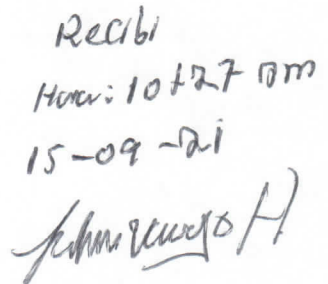 Recibi
Hora: 10:27 am
15-09-21